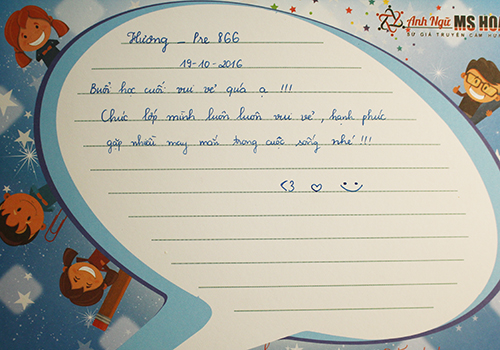 Anh Ngữ MS HOA
Hương - Pre 866
19-10-2016
Buổi học cuối vui vẻ quá ạ !!!
Chúc lớp mình luôn luôn vui vẻ, hạnh phúc
gặp nhiều may mắn trong cuộc sống nhé !!!
<3 ♡ :)